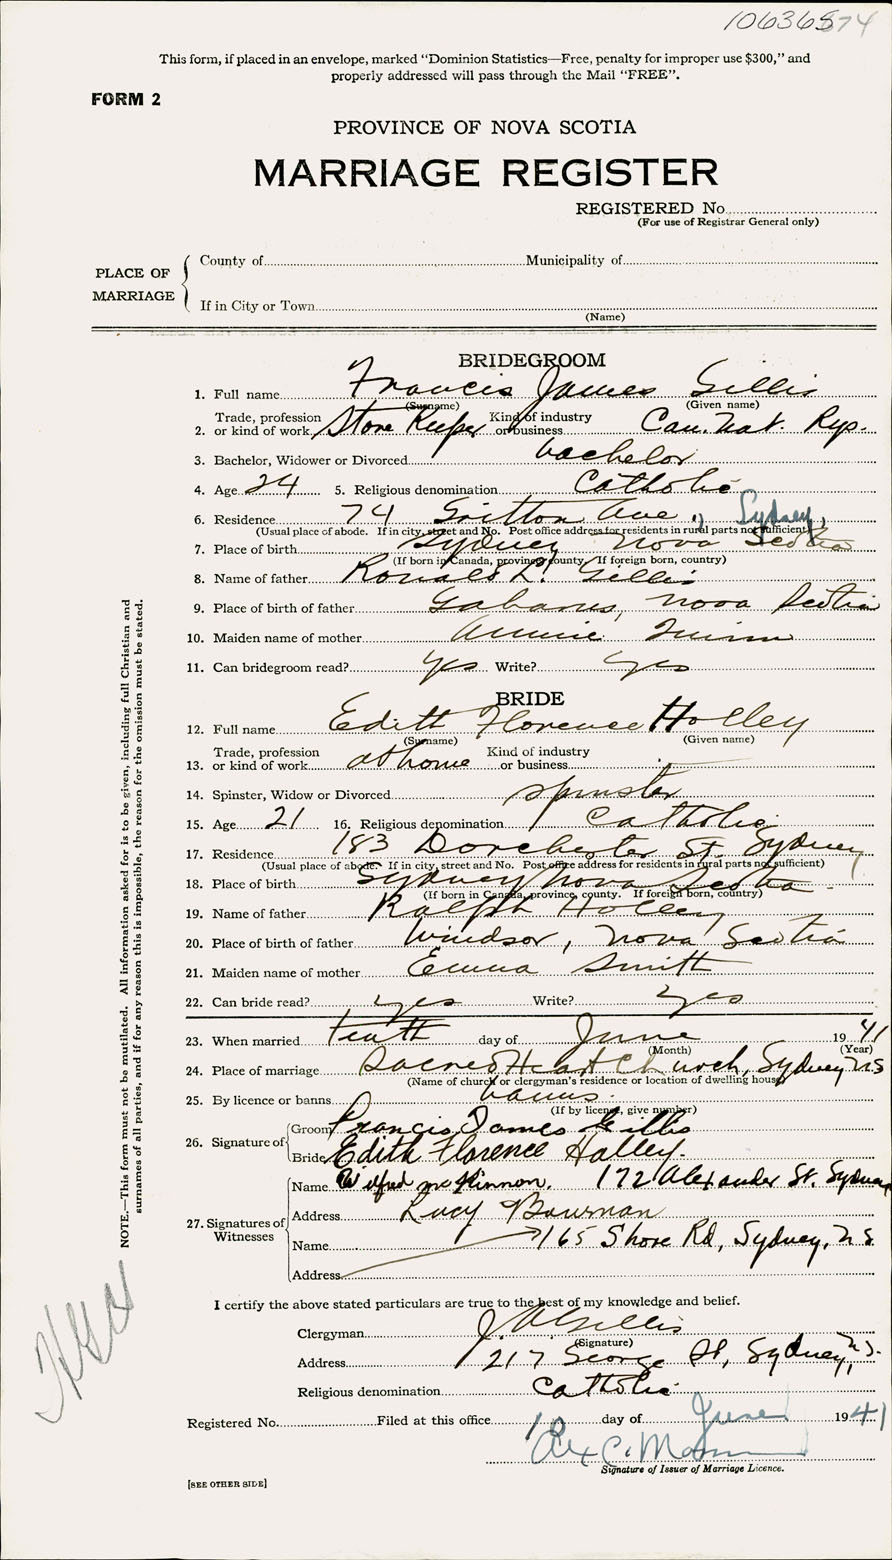 1063674
This form, if placed in an envelope, marked “Dominion Statistics—Free, penalty for improper use $300,” and
properly addressed will pass through the Mail “FREE”.
FORM 2
PROVINCE OF NOVA SCOTIA
MARRIAGE REGISTER
REGISTERED No.
(For use of Registrar General only)
PLACE OF MARRIAGE
County of Municipality of
If in City or Town
(Name)
BRIDEGROOM
1. Full name Francis James Gillis
(Surname) (Given name)
2. Trade, profession or kind of work Store Keeper Kind of industry or business Can. Nat. Rys.
3. Bachelor, Widower or Divorced bachelor
4. Age 24 5. Religious denomination Catholic
6. Residence 74 Ave., Sydney,
(Usual place of abode. If in city, street and No. Post office address for residents in rural parts not sufficient)
7. Place of birth Sydney Nova Scotia
(If born in Canada, province, county. If foreign born, country)
8. Name of father Ronald L. Gillis
9. Place of birth of father Gabarus, Nova Scotia
10. Maiden name of mother Annie
11. Can bridegroom read? yes Write? yes
BRIDE
12. Full name Edith Florence Holley
(Surname) (Given name)
13. Trade, profession or kind of work at home Kind of industry or business
14. Spinster, Widow or Divorced spinster
15. Age 21 16. Religious denomination Catholic
17. Residence 183 Dorchester St. Sydney
(Usual place of abode. If in city, street and No. Post office address for residents in rural parts not sufficient)
18. Place of birth Sydney Nova Scotia
(If born in Canada, province, county. If foreign born, country)
19. Name of father Ralph Holley
20. Place of birth of father Windsor, Nova Scotia
21. Maiden name of mother Emma Smith
22. Can bride read? yes Write? yes
23. When married tenth day of June 1941
(Month) (Year)
24. Place of marriage Sacred Heart Church, Sydney N.S
(Name of church or clergyman's residence or location of dwelling house)
25. By licence or banns banns.
(If by licence, give number)
26. Signature of
Groom Francis James Gillis
Bride Edith Florence Holley.
27. Signatures of Witnesses
Name Wilfred McKinnon. 172 Alexander St. Sydney
Address Lucy Bowman
Name 165 Shore Rd, Sydney, N.S.
Address
I certify the above stated particulars are true to the best of my knowledge and belief.
Clergyman J. A. Gillis
(Signature)
Address 217 George St, Sydney, N.S.
Religious denomination Catholic
Registered No. Filed at this office 10 day of June 1941
Alex C.
Signature of Issuer of Marriage Licence.
[SEE OTHER SIDE]
NOTE.—This form must not be mutilated. All information asked for is to be given, including full Christian and
surnames of all parties, and if for any reason this is impossible, the reason for the omission must be stated.